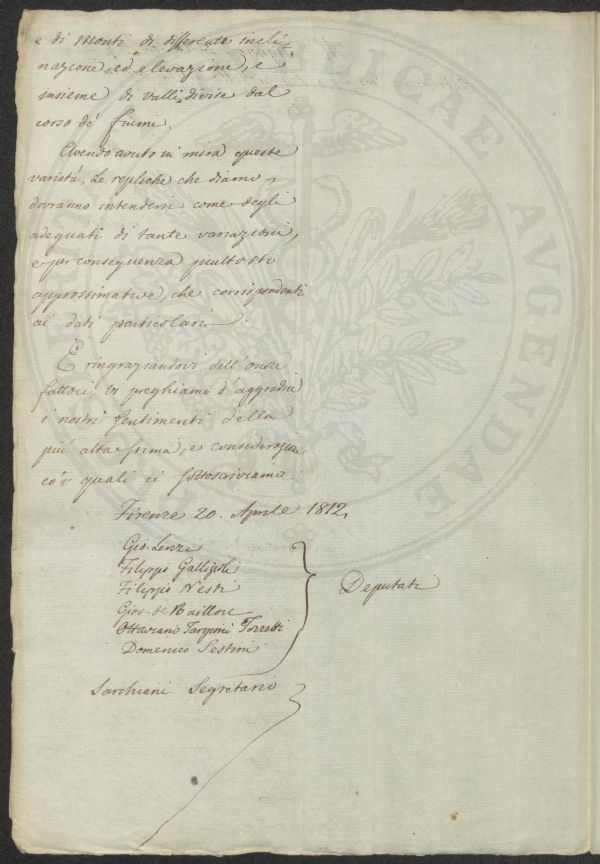 e di Monti di differente incli-
nazione, ed elevazione, e
insieme di valli divise dal
corso de' fiumi.
Avendo avuto in mira queste
varietà, le repliche che diamo,
dovranno intendersi come degli
adeguati di tante variazioni,
e per conseguenza piuttosto
approssimative, che corrispondenti
ai dati particolari.
E ringraziandovi dell'onore
fattoci, vi preghiamo d'aggradire
i nostri sentimenti della
più alta stima, e considerazione
co'i quali ci sottoscriviamo.
Firenze 20. Aprile 1812.
Gio. Lenzi
Filippo Gallizioli
Filippo Nesti
Giov. de Baillou
Ottaviano Targioni Tozzetti
Domenico Sestini
Deputati
Sarchiani Segretario
PUBLICAE
AUGENDAE